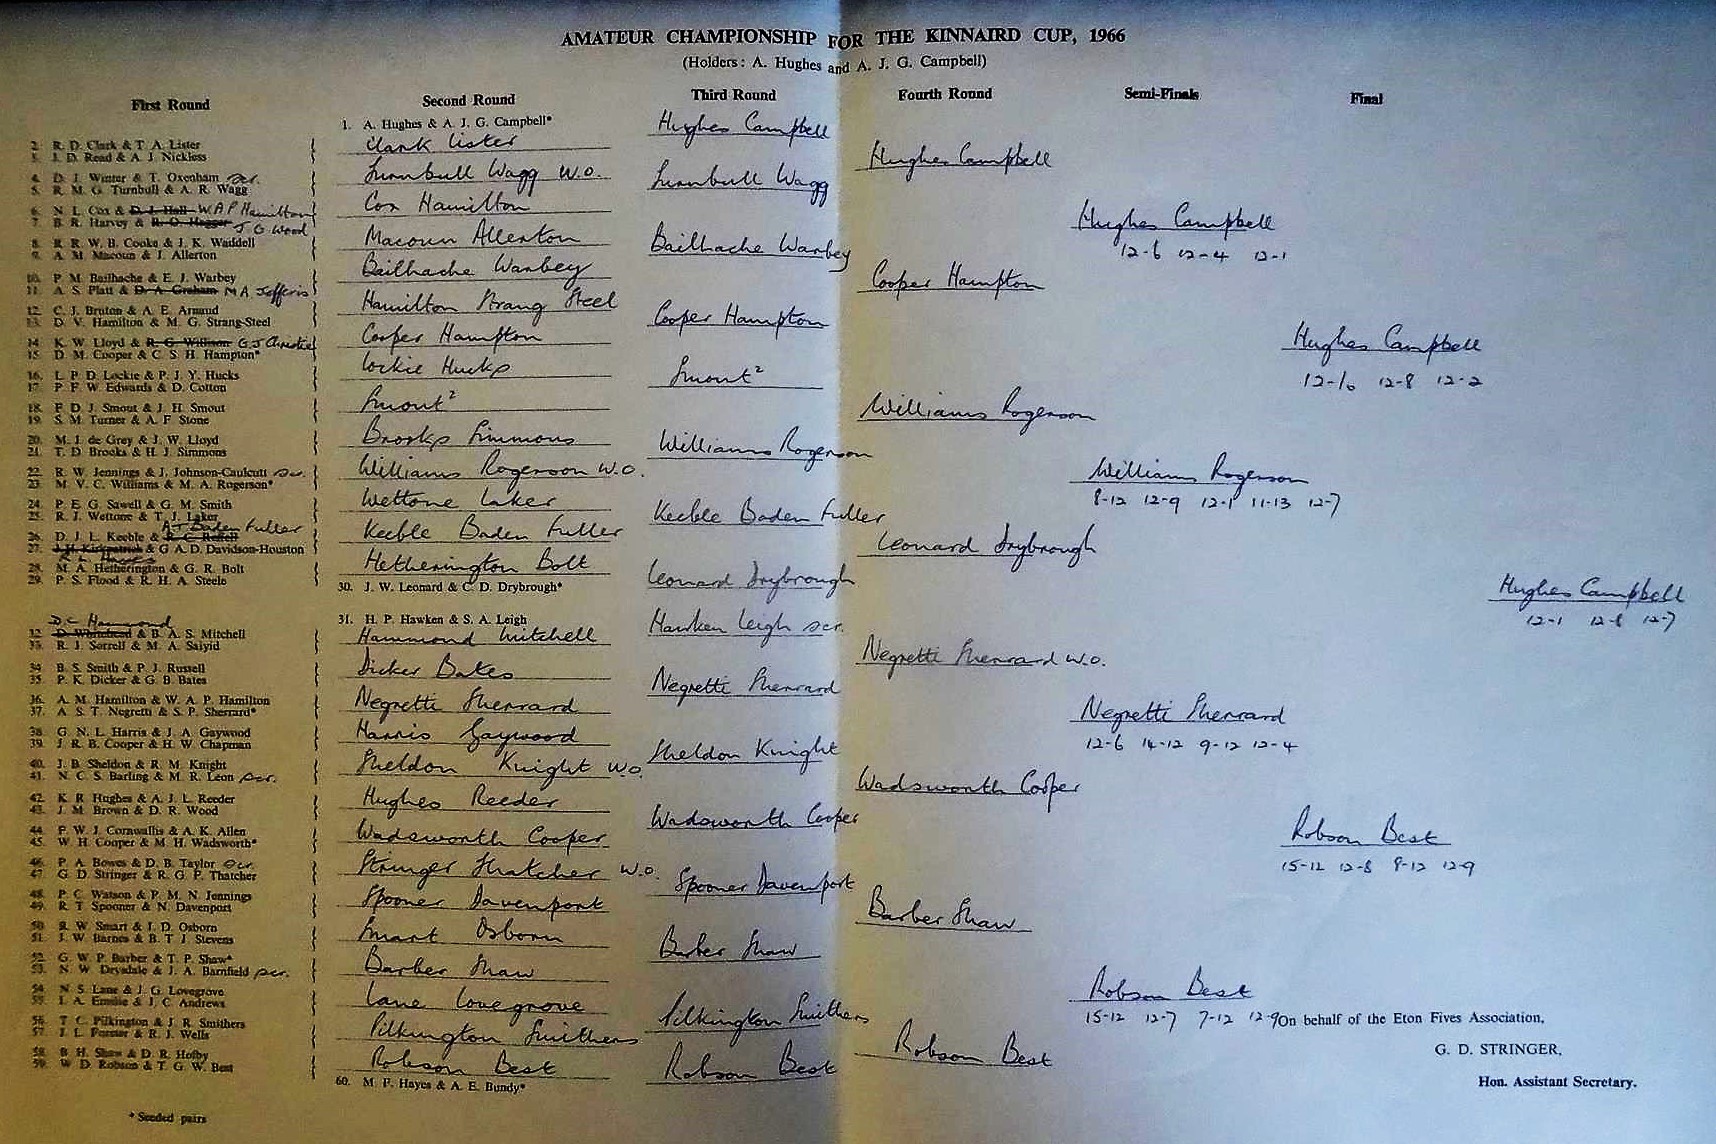 AMATEUR CHAMPIONSHIP FOR THE KINNAIRD CUP, 1966
(Holders: A. Hughes and A. J. G. Campbell)
First Round
2. R. D. Clark & T. A. Lister
3. J. D. Read & A. J. Nickless
4. D. J. Winter & T. Oxenham scr.
5. R. M. G. Turnbull & A. R. Wagg
6. N. L. Cox & D. J. Hall W.A.P Hamilton
7. B. R. Harvey & J G Wood
8. R. R. W. B. Cooke & J. K. Waddell
9. A. M. Macoun & J. Allerton
10. P. M. Bailhache & E. J. Warbey
11. A. S. Platt & D. A. Graham M A Jefferis
12. C. J. Bruton & A. E. Arnaud
13. D. V. Hamilton & M. G. Strang-Steel
14. K. W. Lloyd & R. G. Willison G J Christie
15. D. M. Cooper & C. S. H. Hampton*
16. L. P. D. Lockie & P. J. Y. Hucks
17. P. F. W. Edwards & D. Cotton
18. F. D. J. Smout & J. H. Smout
19. S. M. Turner & A. F. Stone
20. M. J. de Grey & J. W. Lloyd
21. T. D. Brooks & H. J. Simmons
22. R. W. Jennings & J. Johnson-Caulcutt scr.
23. M. V. C. Williams & M. A. Rogerson*
24. P. E. G. Sawell & G. M. Smith
25. R. J. Wettone & T. J. Laker
A J Baden Fuller
26. D. J. L. Keeble &
27. J. H. Kirkpatrick & G A. D. Davidson-Houston
28. M. A. Hetherington & G. R. Bolt
29. P. S. Flood & R. H. A. Steele
D C Hammond
32. D. Whitehead & B. A. S. Mitchell
33. R. J. Sorrell & M. A. Saiyid
34. B. S. Smith & P. J. Russell
35. P. K. Dicker & G. B. Bates
36. A. M. Hamilton & W. A. P. Hamilton
37. A. S. T. Negretti & S. P. Sherrard*
38. G. N. L. Harris & J. A. Gaywood
39. J. R. B. Cooper & H. W. Chapman
40. J. B. Sheldon & R. M. Knight
41. N. C. S. Barling & M. R. Leon scr.
42. K. R. Hughes & A. J. L. Reeder
43. J. M. Brown & D. R. Wood
44. F. W. J. Cornwallis & A. K. Allen
45. W. H. Cooper & M. H. Wadsworth*
46. P. A. Bowes & D. B. Taylor scr.
47. G. D. Stringer & R. G. P. Thatcher
48. P. C. Watson & P. M. N. Jennings
49. R. T. Spooner & N. Davenport
50. R. W. Smart & J. D. Osborn
51. J. W. Barnes & B. T. J. Stevens
52. G. W. P. Barber & T. P. Shaw*
53. N. W. Drysdale & J. A. Barnfield scr.
54. N. S. Lane & J. G. Lovegrove
55. I. A. Emslie & J. C. Andrews
56. T. C. Pilkington & J. R. Smithers
57. J. L. Forster & R. J. Wells
58. B. H. Shaw & D. R. Holby
59. W. D. Robson & T. G. W. Best
* Seeded pairs
Second Round
1. A. Hughes & A. J. G. Campbell*
Clark Lister
Turnbull Wagg W.O.
Cox Hamilton
Macoun Allerton
Bailhache Warbey
Hamilton Strang Steel
Cooper Hampton
Lockie Hucks
Smout²
Brooks Simmons
Williams Rogerson W.O.
Wettone Laker
Keeble Baden Fuller
Hetherington Bolt
30. J. W. Leonard & C. D. Drybrough*
31. H. P. Hawken & S. A. Leigh
Hammond Mitchell
Dicker Bates
Negretti Sherrard
Harris Gaywood
Sheldon Knight W.O.
Hughes Reeder
Wadsworth Cooper
Stringer Thatcher W.O.
Spooner Davenport
Smart Osborn
Barber Shaw
Lane Lovegrove
Pilkington Smithers
Robson Best
60. M. F. Hayes & A. E. Bundy*
Third Round
Hughes Campbell
Turnbull Wagg
Bailhache Warbey
Cooper Hampton
Smout²
Williams Rogerson
Keeble Baden Fuller
Leonard Drybrough
Hawken Leigh scr.
Negretti Sherrard
Sheldon Knight
Wadsworth Cooper
Spooner Davenport
Barber Shaw
Pilkington Smithers
Robson Best
Fourth Round
Hughes Campbell
Cooper Hampton
Williams Rogerson
Leonard Drybrough
Negretti Sherrard W.O.
Wadsworth Cooper
Barber Shaw
Robson Best
Semi-Finals
Hughes Campbell
12-6 12-4 12-1
Williams Rogerson
8-12 12-9 12-1 11-13 12-7
Negretti Sherrard
12-6 14-12 9-12 12-4
Robson Best
15-12 12-7 7-12 12-9
Final
Hughes Campbell
12-10 12-8 12-2
Robson Best
15-12 12-8 9-12 12-9
Hughes Campbell
12-1 12-8 12-7
On behalf of the Eton Fives Association,
G. D. STRINGER,
Hon. Assistant Secretary.